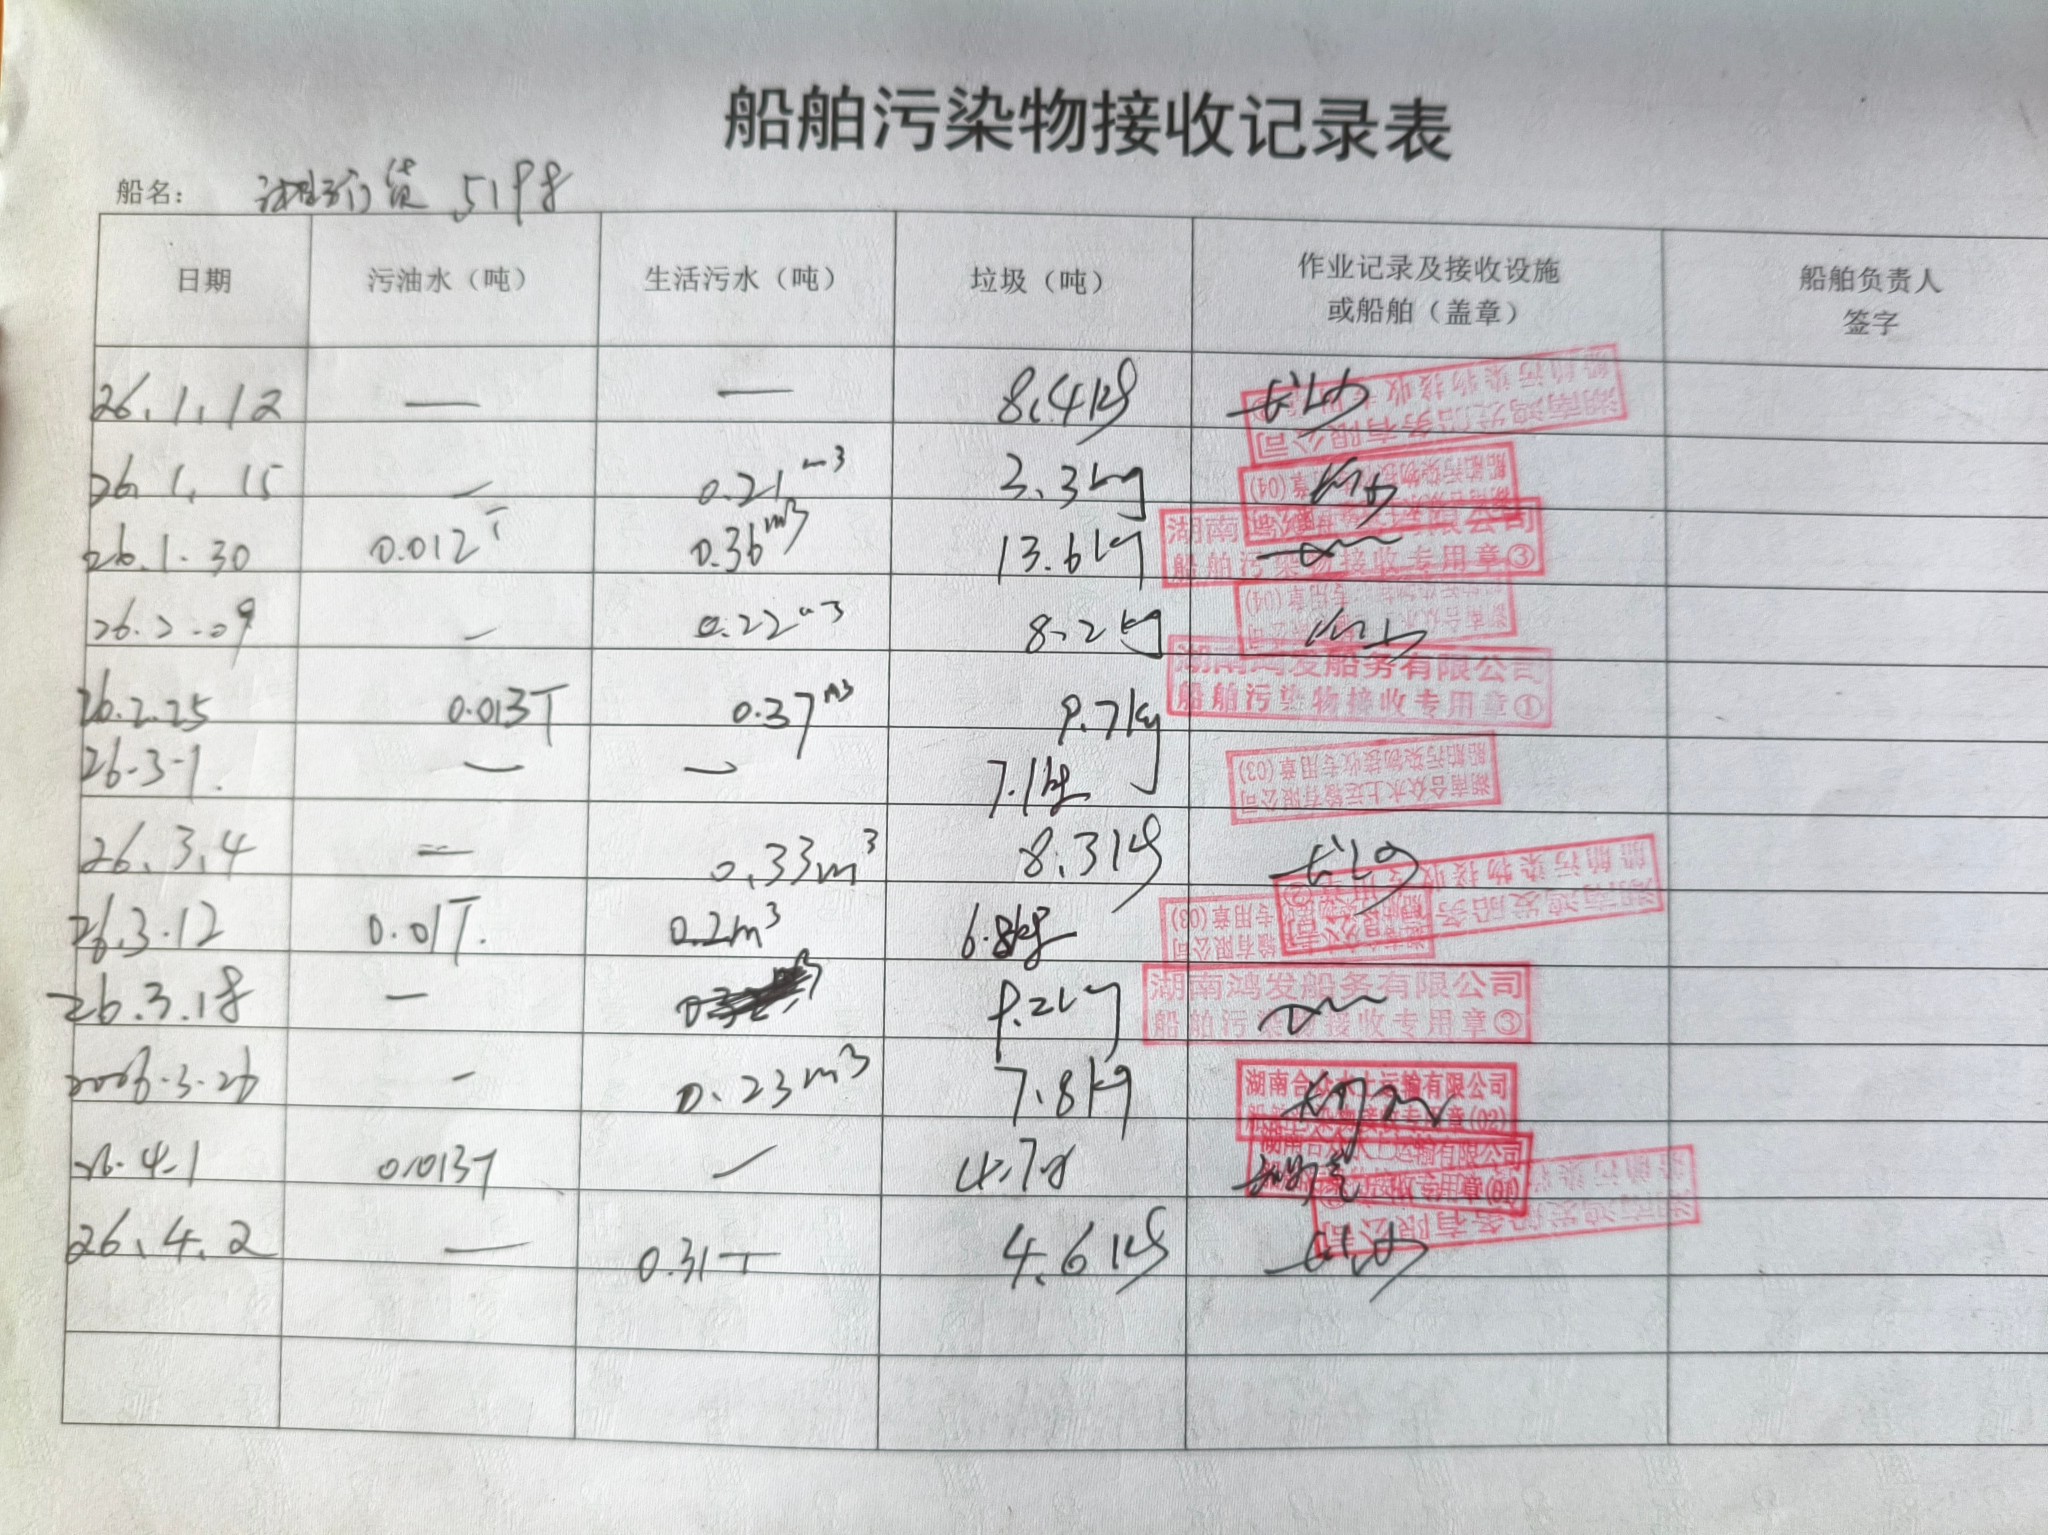 船舶污染物接收记录表
船名： 湘 货 5198
日期 污油水（吨） 生活污水（吨） 垃圾（吨） 作业记录及接收设施 或船舶（盖章） 船舶负责人 签字
26.1.12 — — 8.4kg
湖南鸿发船务有限公司
船舶污染物接收专用章
26.1.15 — 0.21m3 3.3kg
船舶污染物接收专用章(04)
26.1.30 0.012T 0.36m3 13.6kg
湖南 有限公司
船舶污染物接收专用章③
26.2.09 — 0.22m3 8.2kg
专用章(04)
26.2.25 0.013T 0.37m3 9.7kg
湖南鸿发船务有限公司
船舶污染物接收专用章①
26.3.1. — — 7.1kg
湖南合众水上运输有限公司
船舶污染物接收专用章(03)
26.3.4 — 0.33m3 8.3kg
湖南鸿发船务
船舶污染物接收
26.3.12 0.01T. 0.2m3 6.8kg
运输有限公司
专用章(03)
26.3.18 — 9.2kg
湖南鸿发船务有限公司
船舶污染物接收专用章③
2026.3.26 — 0.23m3 7.8kg
湖南合众水上运输有限公司
船舶污染物接收专用章(02)
26.4.1 0.013T —
湖南合众水上运输有限公司
接收专用章
26.4.2 — 0.31T 4.6kg
湖南鸿发船务有限公司